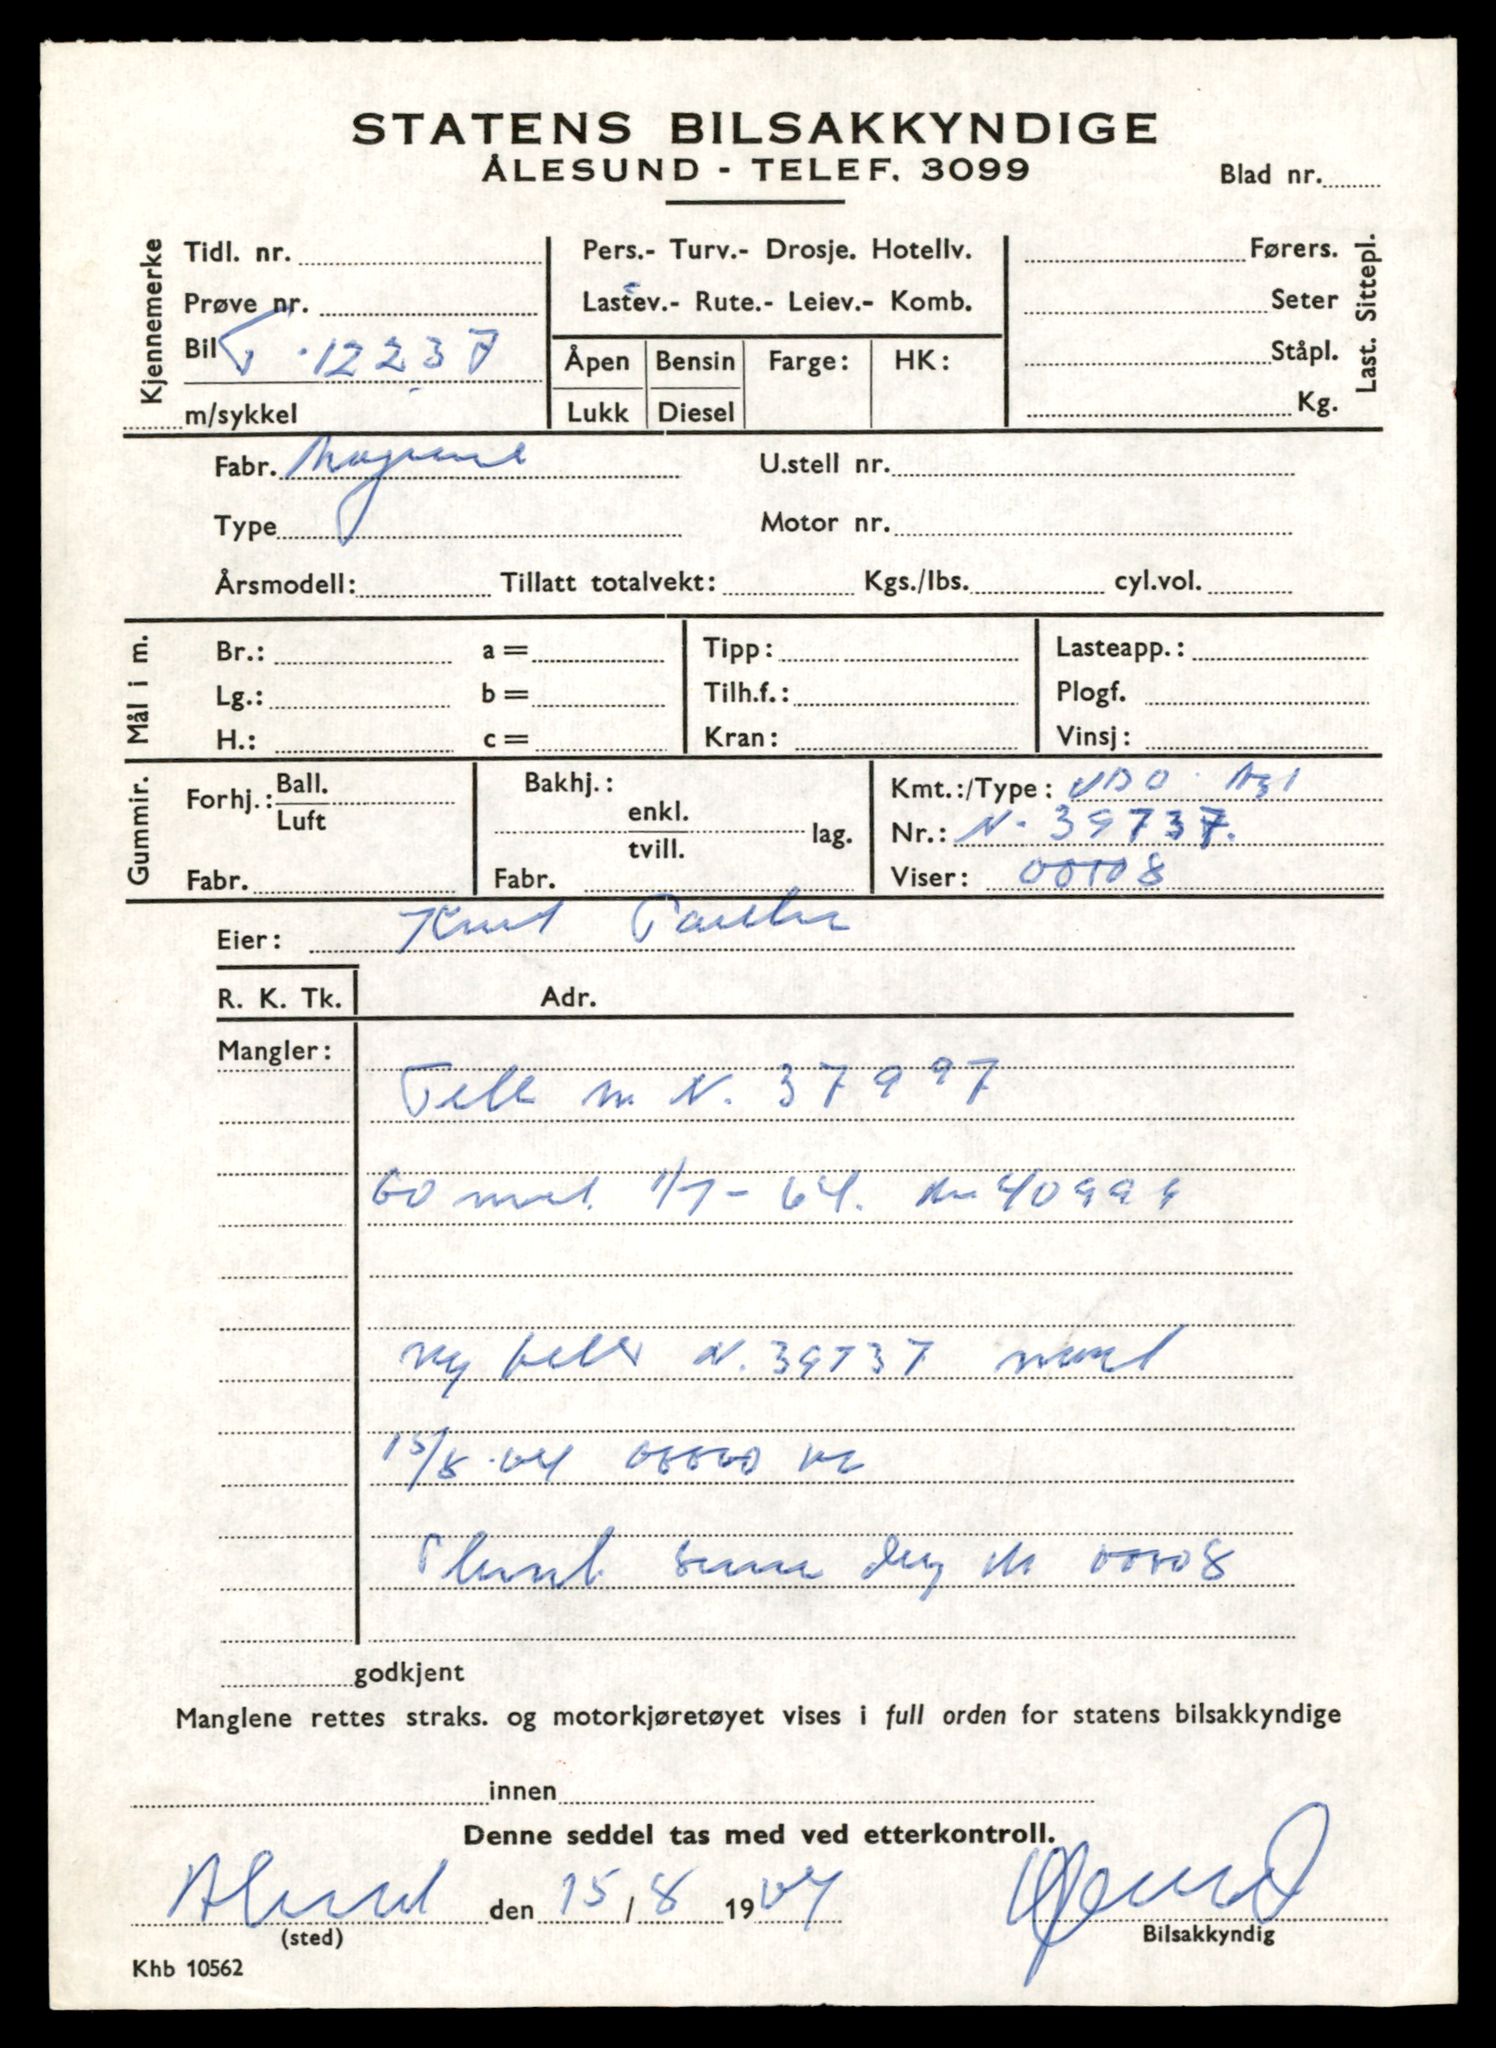 STATENS BILSAKKYNDIGE
ÅLESUND - TELEF. 3099
Blad nr.
Kjennemerke
Tidl. nr.
Prøve nr.
Bil T-12237
m/sykkel
Pers.- Turv.- Drosje. Hotellv.
Lastev.- Rute.- Leiev.- Komb.
Åpen Bensin Farge: HK:
Lukk Diesel
Førers.
Seter
Ståpl.
Kg.
Last. Sittepl.
Fabr.
U.stell nr.
Type
Motor nr.
Årsmodell: Tillatt totalvekt: Kgs./lbs. cyl.vol.
Mål i m.
Br.: a = Tipp: Lasteapp.:
Lg.: b = Tilh.f.: Plogf.
H.: c = Kran: Vinsj:
Gummir.
Forhj.: Ball.
Luft
Fabr.
Bakhj.:
enkl.
tvill. lag.
Fabr.
Kmt.:/Type: VDO
Nr.: N. 39737.
Viser: 00008
Eier: Knut
R. K. Tk. Adr.
Mangler:
Tell m N. 37997
1/7-64. 40999
Ny teller N. 39737 mont
15/8-64 00000 km
Plomb. samme dag 00008
godkjent
Manglene rettes straks. og motorkjøretøyet vises i full orden for statens bilsakkyndige
innen
Denne seddel tas med ved etterkontroll.
Ålesund den 15/8 1964
(sted)
Bilsakkyndig
Khb 10562